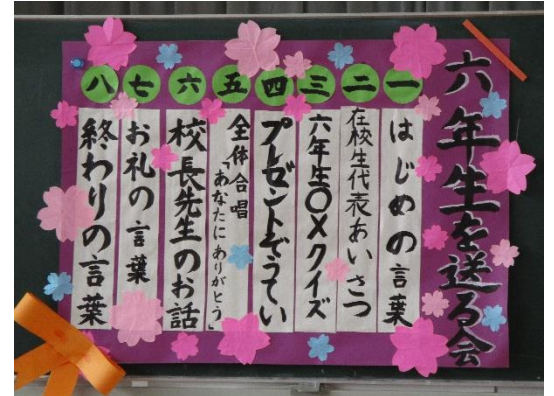 六年生を送る会
一
はじめの言葉
二
在校生代表あいさつ
三
六年生○×クイズ
四
プレゼントぞうてい
五
全体合唱
「あなたにありがとう」
六
校長先生のお話
七
お礼の言葉
八
終わりの言葉